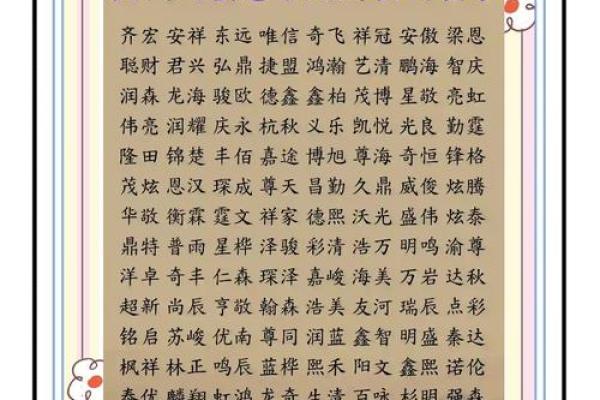 齐宏 安祥 东远 唯信 奇飞 祥冠 安傲 梁恩
聪财 君兴 弘鼎 捷盟 鸿瀚 艺清 鹏海 智庆
润森 龙海 骏欧 德鑫 鑫柏 茂博 星敬 亮虹
伟亮 润耀 庆永 杭秋 义乐 凯悦 光良 勤霆
隆田 锦楚 丰佰 嘉途 博旭 尊海 奇恒 锋格
茂炫 恩汉 琛成 尊天 昌勤 久鼎 威俊 炫腾
华敬 衡霖 霆文 祥家 德熙 沃光 盛伟 炫泰
鼎特 普雨 星桦 泽骏 彩清 浩万 明鸣 渝尊
洋卓 奇丰 仁森 琛泽 嘉峻 海美 万岩 达秋
超新 尚辰 亨敬 翰森 浩美 友河 瑞辰 点彩
铭启 苏峻 优南 尊同 润蓝 鑫智 明盛 秦达
枫祥 林正 鸣辰 蓝桦 熙禾 阳文 鑫熙 诺伦
泰优 麟翔 虹鸿 龙奇 生清 百咏 杉明 强森